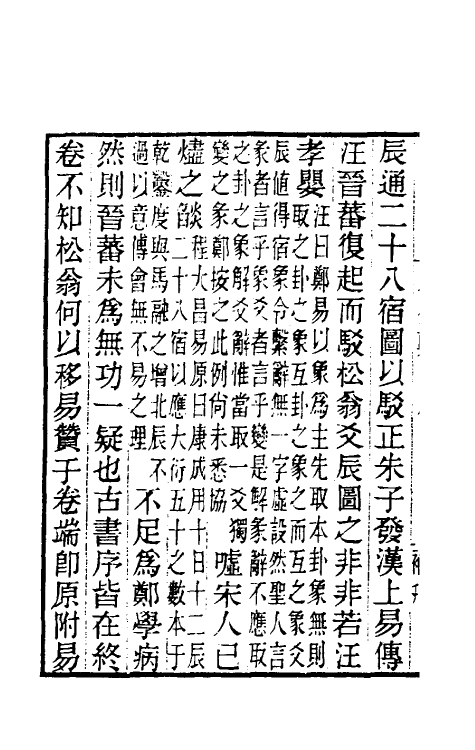 辰通二十八宿圖以駁正朱子發漢上易傳
汪晉蕃復起而駁松翁爻辰圖之非非若汪
孝嬰
汪曰鄭易以象爲主先取本卦象無則
取之卦之象互卦之象之而互之象爻
辰値得宿象令繫辭無一字虛設然聖人言
象者言乎象爻者言乎變是解象辭不應取
之卦之象解爻辭惟當取一爻獨
變之象鄭按之此例尚未悉協
噓宋人已
燼之燄
程大昌易原曰康成用十日十二辰
二十八宿以應大衍五十之數本于
乾鑿度與馬融之增北辰不
過以意傅會無不易之理
不足爲鄭學病
然則晉蕃未爲無功一疑也古書序皆在終
卷不知松翁何以移易贊于卷端卽原附易